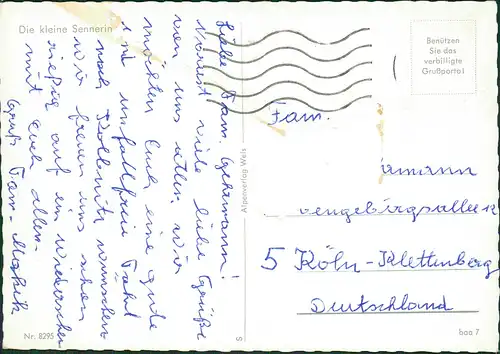 Die kleine Sennerin
Liebe Fam. Gehrmann!
Vorerst viele liebe Grüße
von uns allen. Wir
möchten Euch eine gute
und unfallfreie Fahrt
nach Kolbnitz wünschen
wir freuen uns schon
riesig auf ein Wiedersehen
mit Euch allen.
Gruß Fam.
Nr. 8295
Alpenverlag Wels
S
Benützen
Sie das
verbilligte
Grußporto!
Fam.
mann
engebirgsallee 12
5 Köln-Klettenberg
Deutschland
baa 7